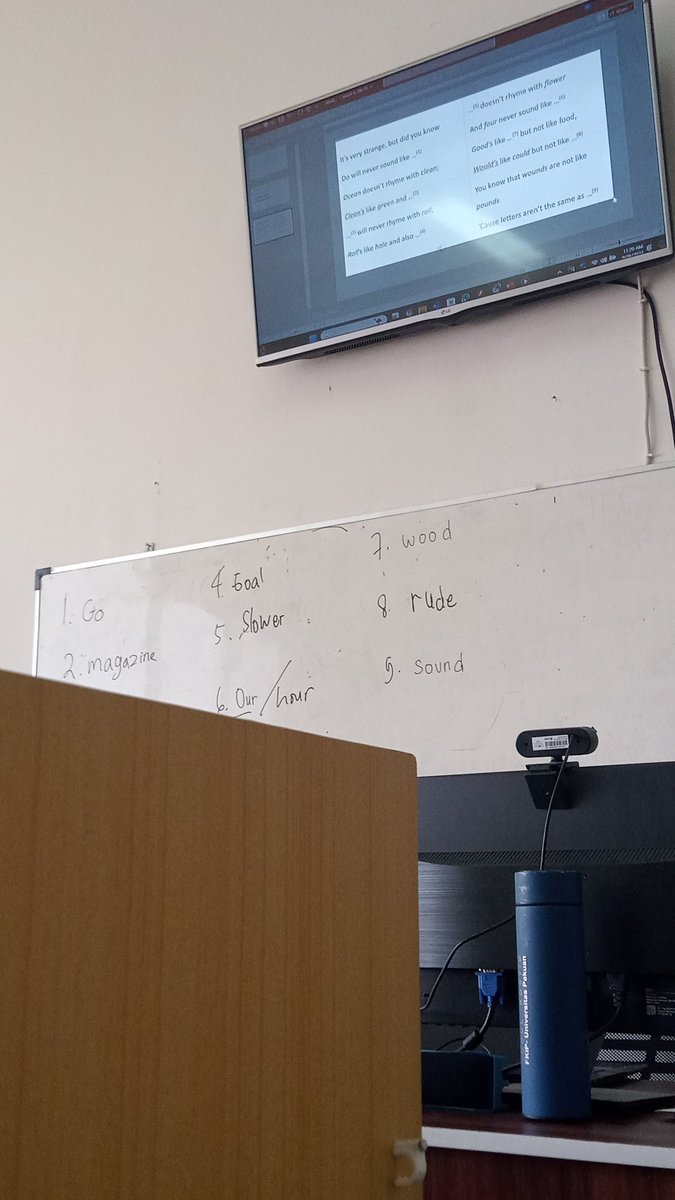 It's very strange, but did you know
Do will never sound like ...(1)
Ocean doesn't rhyme with clean;
Clean's like green and ...(2)
...(3) will never rhyme with roll;
Roll's like hole and also ...(4)
...(5) doesn't rhyme with flower
And four never sound like ...(6)
Good's like ...(7) but not like food,
Would's like could but not like ...(8)
You know that wounds are not like
pounds
'Cause letters aren't the same as ...(9)
11:20 AM
LG
1. Go
2. magazine
4. Goal
5. Slower
6. Our/hour
7. wood
8. rude
9. Sound
FKIP- Universitas Pakuan